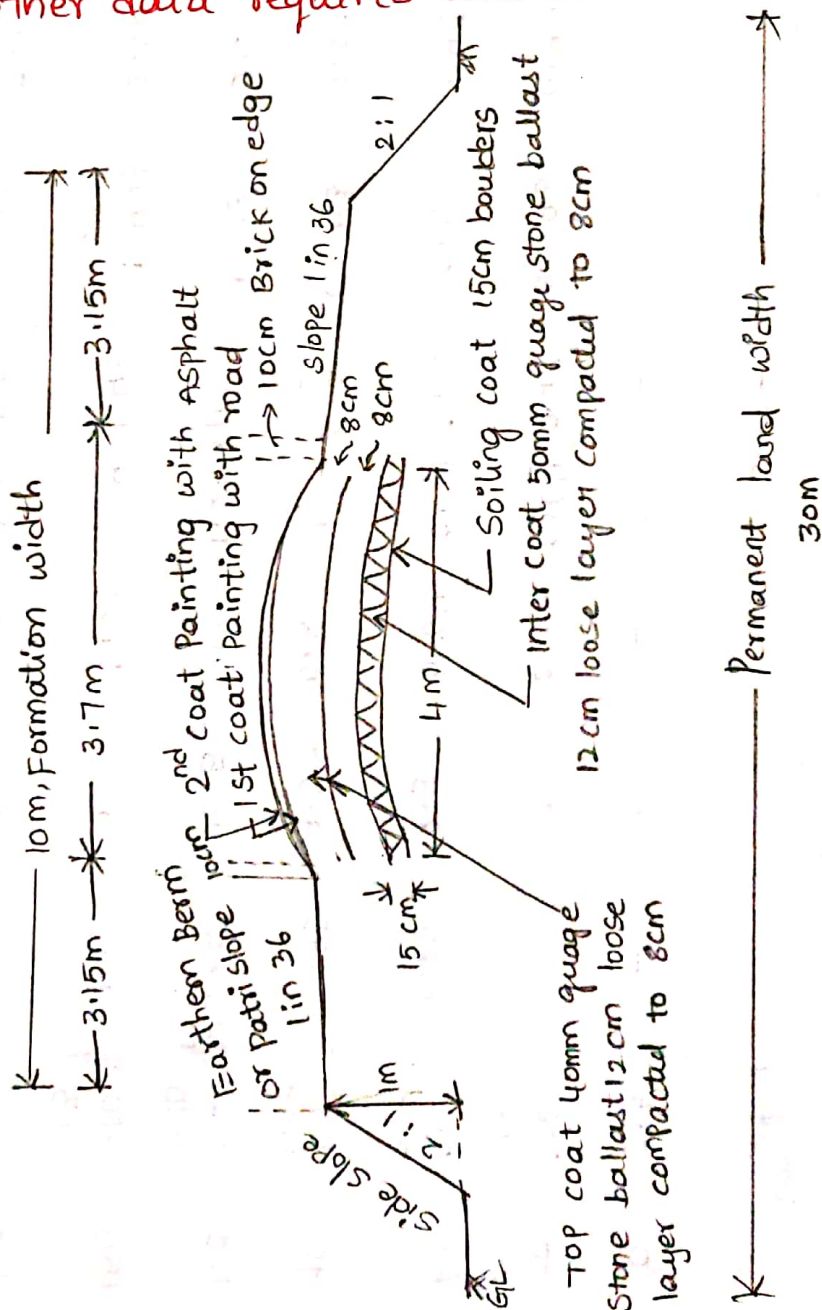 other data requires
10m, Formation width
3.15m
3.7m
3.15m
Earthern Berm
or patri slope
1 in 36
10cm
2nd coat Painting with Asphalt
1st coat painting with road
10cm Brick on edge
slope 1 in 36
2:1
8cm
8cm
side slope
2:1
1m
15cm
4m
GL
Soiling coat 15cm boulders
Inter coat 50mm quage stone ballast
12cm loose layer compacted to 8cm
TOP coat 40mm quage
Stone ballast 12cm loose
layer compacted to 8cm
Permanent land width
30m